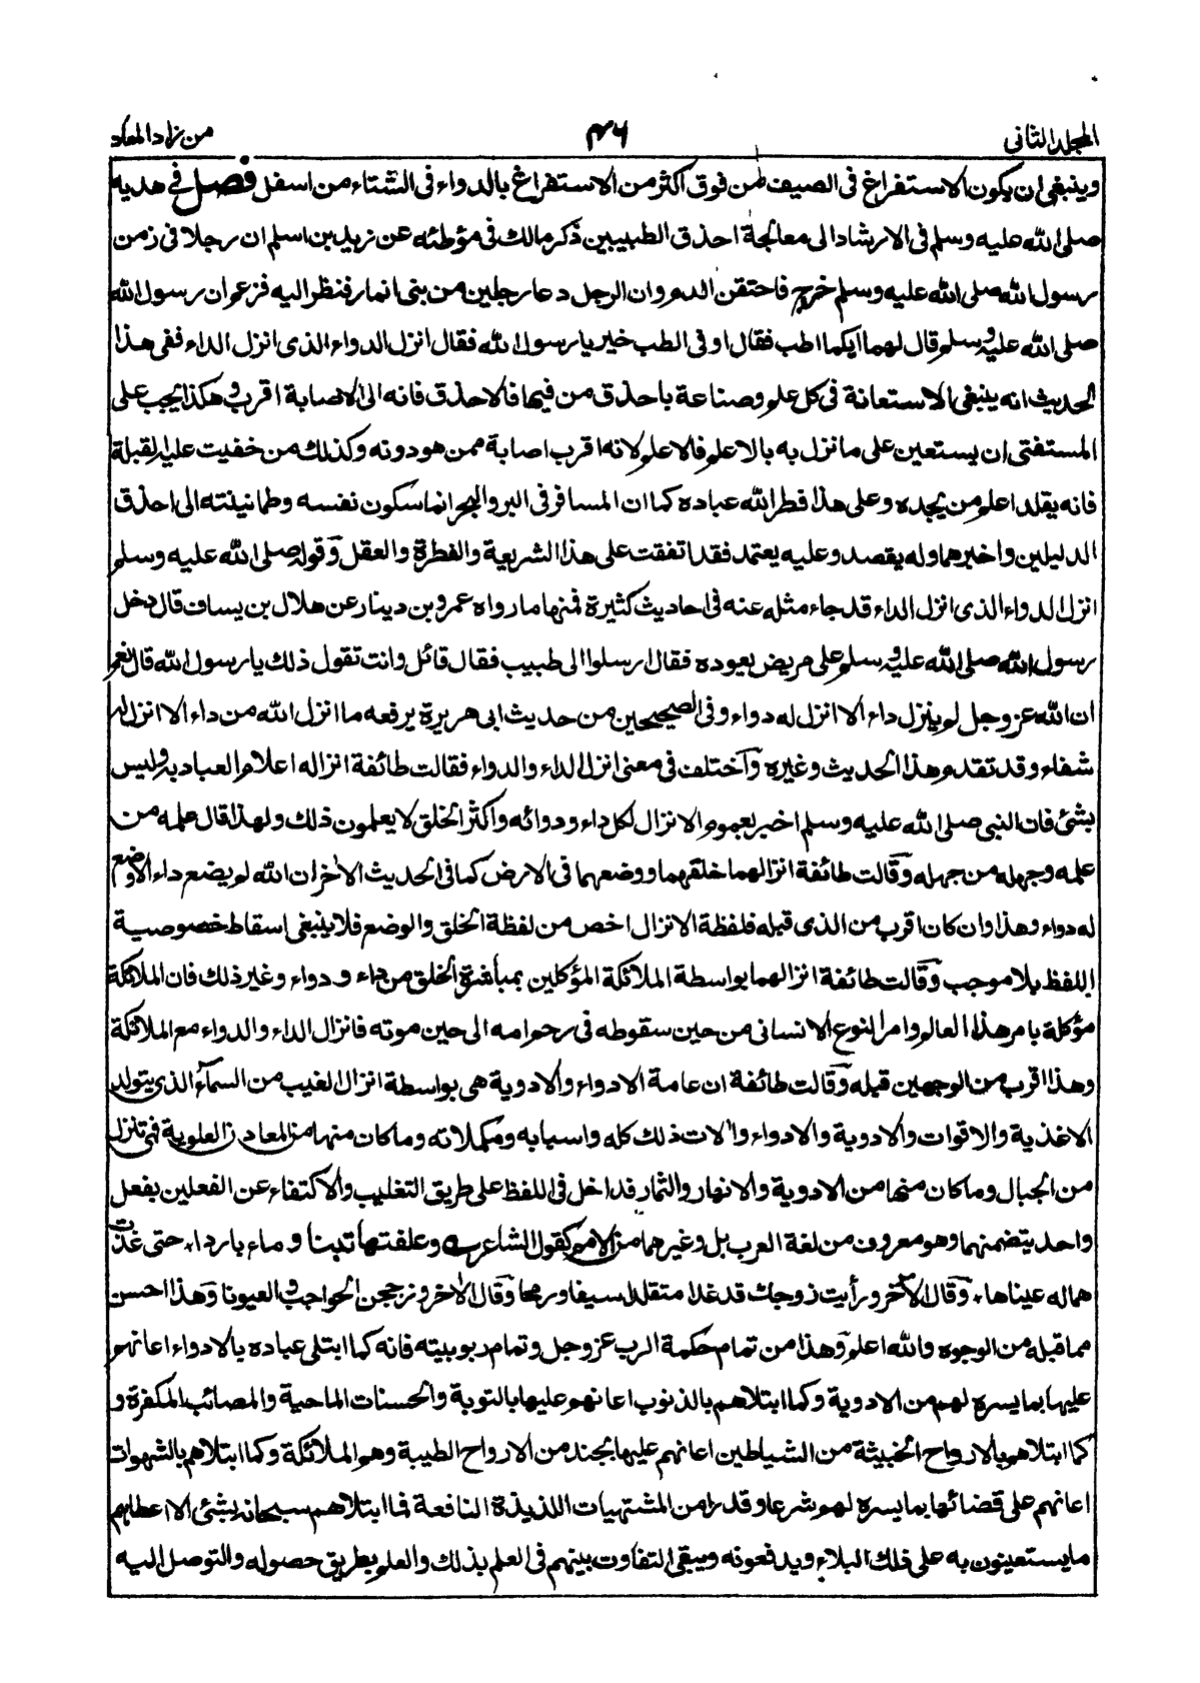 المجلد الثاني
٣٤٦
من زاد المعاد
وينبغي ان يكون الاستفراغ في الصيف من فوق اكثر من الاستفراغ بالدواء في الشتاء من اسفل فصل في هديه
صلى الله عليه وسلم في الارشاد الى معالجة احذق الطبيبين ذكر مالك في مؤطئه عن زيد بن اسلم ان رجلا في زمن
رسول الله صلى الله عليه وسلم خرج فاحتقن الدم وان الرجل دعا رجلين من بني انمار فنظر اليه فزعم ان رسول الله
صلى الله عليه وسلم قال لهما ايكما اطب فقال او في الطب خير يا رسول الله فقال انزل الدواء الذى انزل الداء ففي هذا
الحديث انه ينبغي الاستعانة في كل علم وصناعة باحذق من فيها فالاحذق فانه الى الاصابة اقرب وهكذا يجب على
المستفتي ان يستعين على ما نزل به بالاعلم فالاعلم لانه اقرب اصابة ممن هو دونه وكذلك من خفيت عليه القبلة
فانه يقلد اعلم من يجده وعلى هذا فطر الله عباده كما ان المسافر في البر والبحر انما سكون نفسه وطمانينته الى احذق
الدليلين واخبرهما وله يقصد وعليه يعتمد فقد اتفقت على هذا الشريعة والفطرة والعقل وقوله صلى الله عليه وسلم
انزل الدواء الذى انزل الداء قد جاء مثله عنه في احاديث كثيرة فمنها ما رواه عمرو بن دينار عن هلال بن يساف قال دخل
رسول الله صلى الله عليه وسلم على مريض يعوده فقال ارسلوا الى طبيب فقال قائل وانت تقول ذلك يا رسول الله قال نعم
ان الله عز وجل لم ينزل داء الا انزل له دواء وفي الصحيحين من حديث ابي هريرة يرفعه ما انزل الله من داء الا انزل له
شفاء وقد تقدم هذا الحديث وغيره واختلف في معنى انزل الداء والدواء فقالت طائفة انزاله اعلام العباد به وليس
بشئ فان النبي صلى الله عليه وسلم اخبر بعموم الانزال لكل داء ودوائه واكثر الخلق لا يعلمون ذلك ولهذا قال علمه من
علمه وجهله من جهله وقالت طائفة انزالهما خلقهما ووضعهما في الارض كما في الحديث الآخر ان الله لم يضع داء الا وضع
له دواء وهذا وان كان اقرب من الذى قبله فلفظة الانزال اخص من لفظة الخلق والوضع فلا ينبغي اسقاط خصوصية
اللفظ بلا موجب وقالت طائفة انزالهما بواسطة الملائكة المؤكلين بمباشرة الخلق من داء ودواء وغير ذلك فان الملائكة
مؤكلة بامر هذا العالم وامر النوع الانساني من حين سقوطه في رحم امه الى حين موته فانزال الداء والدواء مع الملائكة
وهذا اقرب من الوجهين قبله وقالت طائفة ان عامة الادواء والادوية هى بواسطة انزال الغيب من السماء الذى يتولد
الاغذية والاقوات والادوية والادواء والآت ذلك كله واسبابه ومكملاته وما كان منها من المعادن العلوية فهي تنزل
من الجبال وما كان منها من الادوية والانهار والثمار فداخل في اللفظ على طريق التغليب والاكتفاء عن الفعلين بفعل
واحد يتضمنهما وهو معروف من لغة العرب بل وغيرهما من الامم كقول الشاعر وعلفتها تبنا وماء باردا، حتى غدت
همالة عيناها، وقال الآخر ورأيت زوجك قد غدا متقلدا سيفا ورمحا وقال الآخر وزججن الحواجب والعيونا وهذا احسن
مما قبله من الوجوه والله اعلم وهذا من تمام حكمة الرب عز وجل وتمام ربوبيته فانه كما ابتلى عباده بالادواء اعانهم
عليها بما يسره لهم من الادوية وكما ابتلاهم بالذنوب اعانهم عليها بالتوبة والحسنات الماحية والمصائب المكفرة و
كما ابتلاهم بالارواح الخبيثة من الشياطين اعانهم عليها بجند من الارواح الطيبة وهم الملائكة وكما ابتلاهم بالشهوات
اعانهم على قضائها بما يسره لهم شرعا وقدرا من المشتهيات اللذيذة النافعة فما ابتلاهم سبحانه بشئ الا اعطاهم
ما يستعينون به على ذلك البلاء ويدفعونه ويبقى التفاوت بينهم في العلم بذلك والعلم بطريق حصوله والتوصل اليه